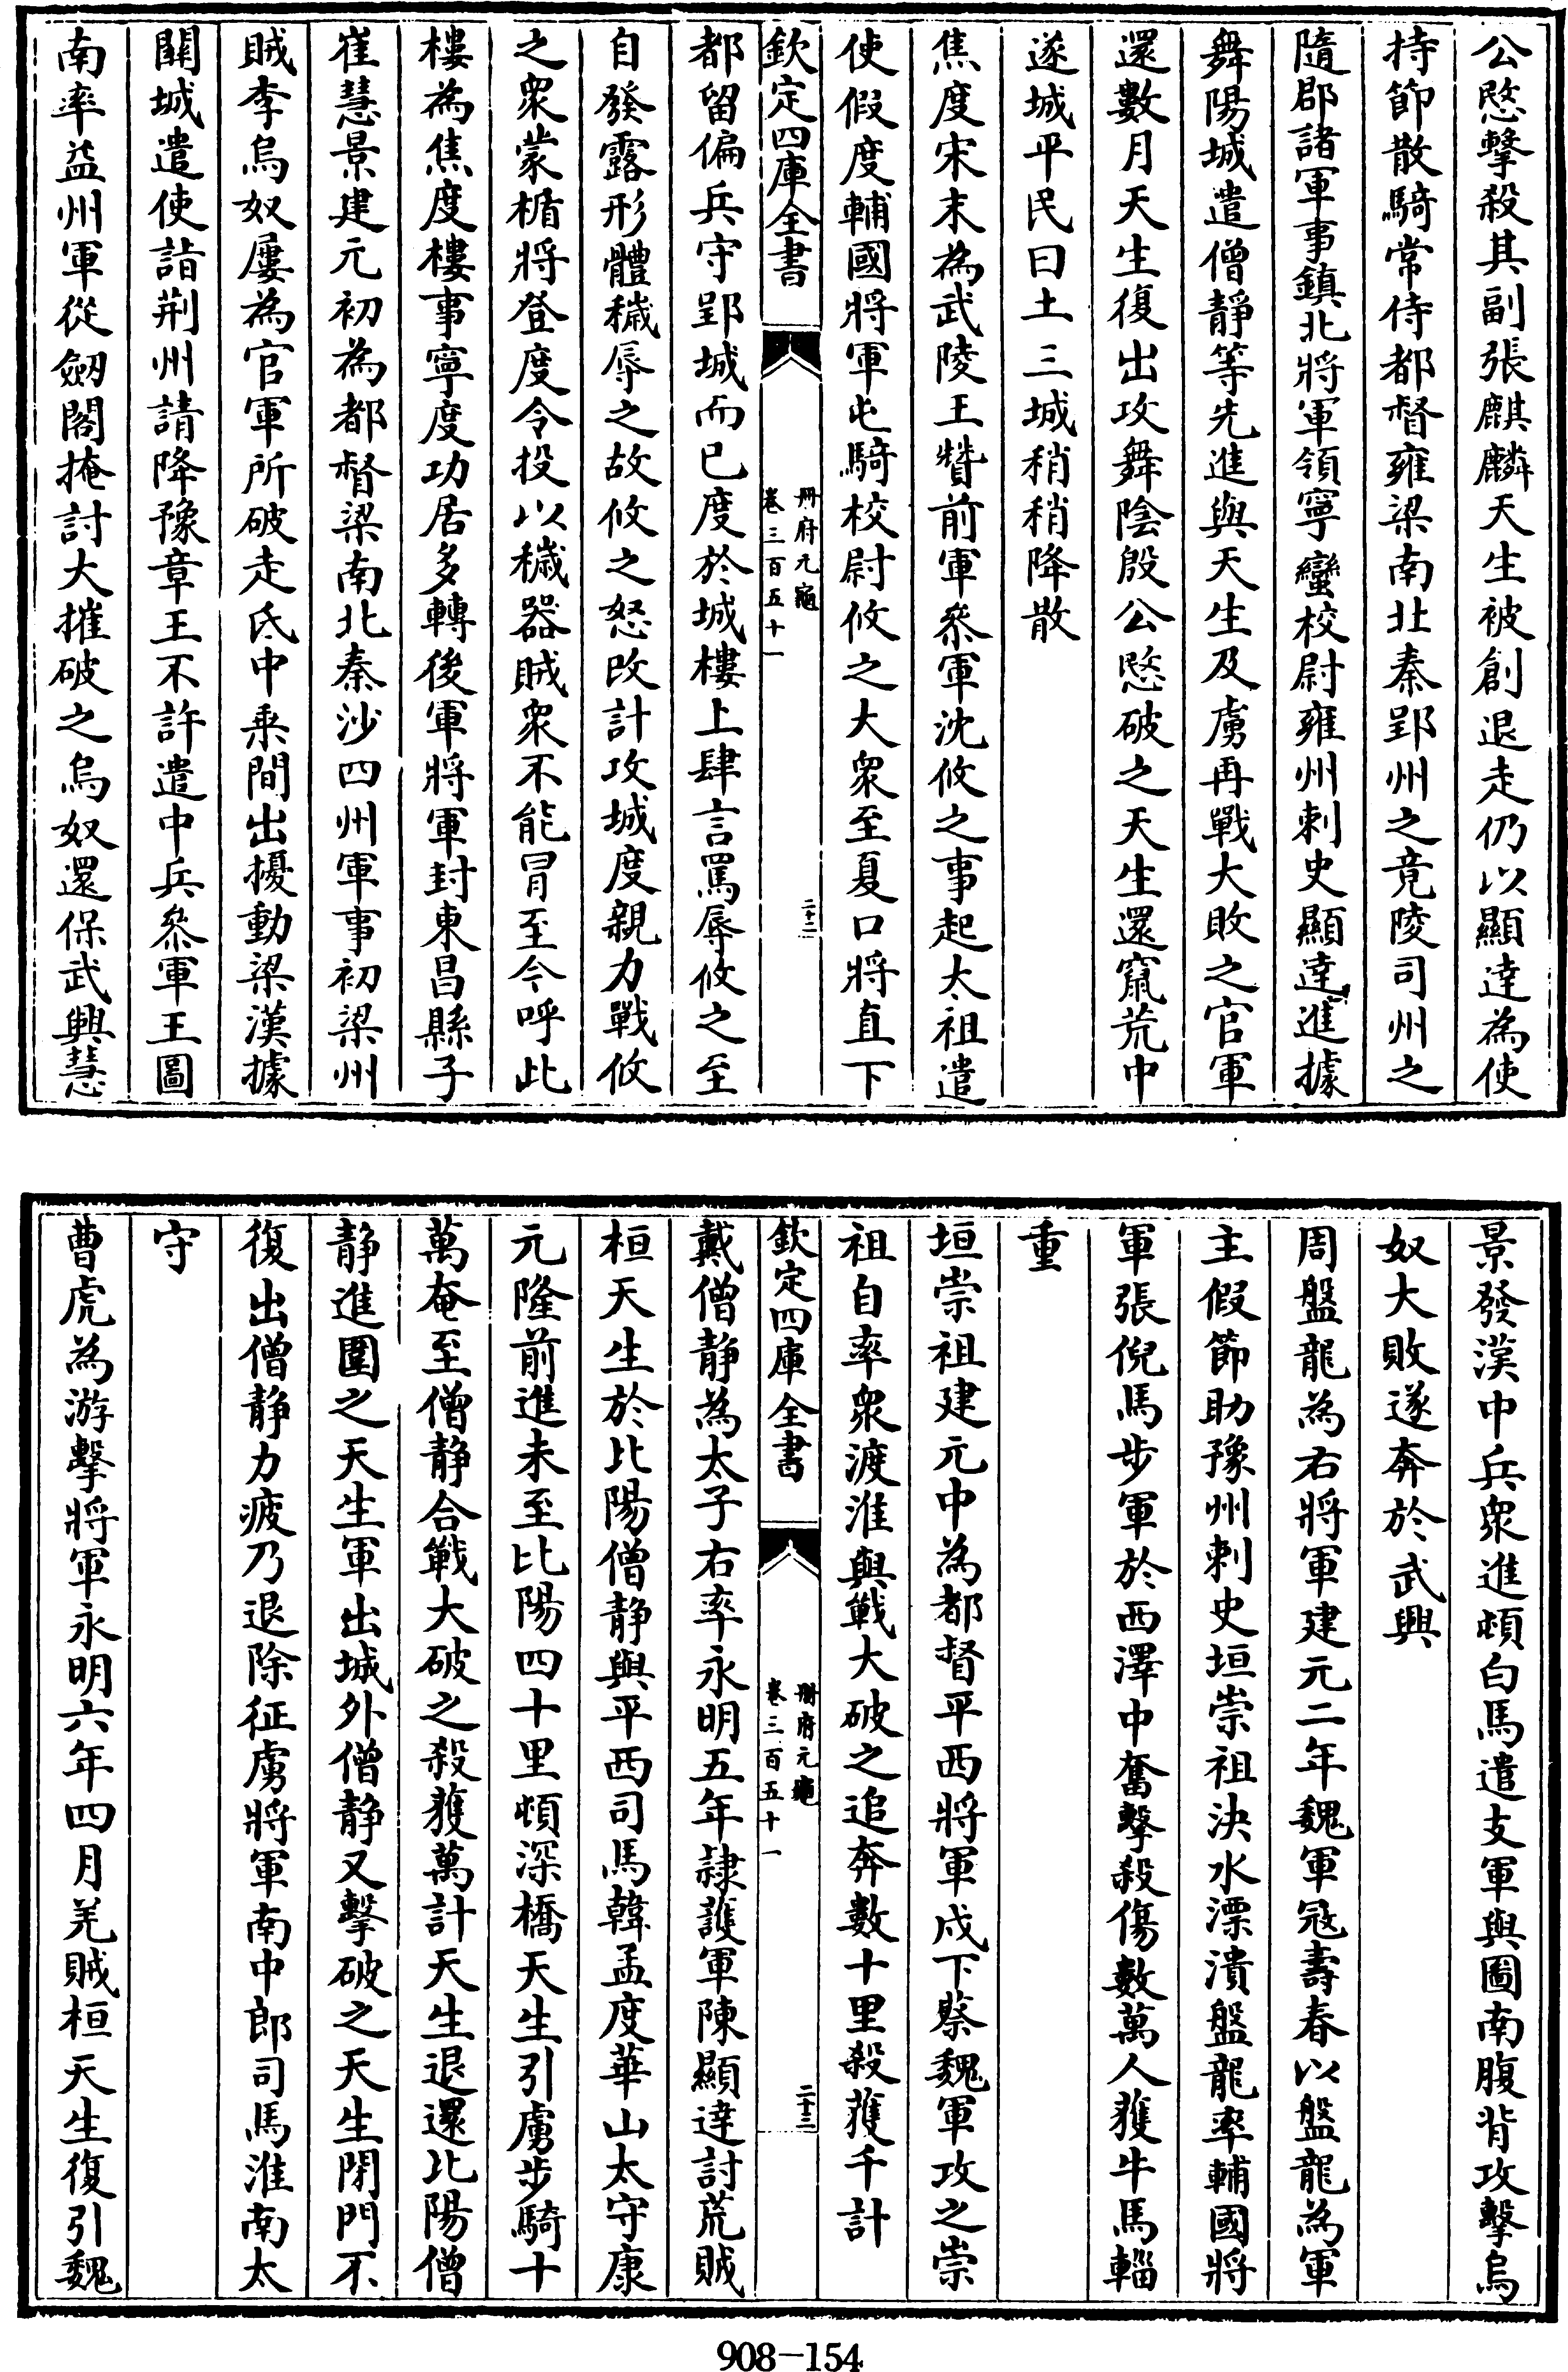 公愍擊殺其副張麒麟天生被創退走仍以顯達為使
持節散騎常侍都督雍梁南北秦郢州之竟陵司州之
隨郡諸軍事鎮北將軍領寧蠻校尉雍州刺史顯達進據
舞陽城遣僧靜等先進與天生及虜再戰大敗之官軍
還數月天生復出攻舞陰殷公愍破之天生還竄荒中
遂城平民曰土三城稍稍降散
焦度宋末為武陵王贊前軍叅軍沈攸之事起太祖遣
使假度輔國將軍屯騎校尉攸之大衆至夏口將直下
欽定四庫全書
冊府元龜
卷三百五十一
二十二
都留偏兵守郢城而已度於城樓上肆言罵辱攸之至
自發露形體穢辱之故攸之怒改計攻城度親力戰攸
之衆蒙楯將登度令投以穢器賊衆不能冒至今呼此
樓為焦度樓事寧度功居多轉後軍將軍封東昌縣子
崔慧景建元初為都督梁南北秦沙四州軍事初梁州
賊李烏奴屢為官軍所破走氐中乘間出擾動梁漢據
關城遣使詣荆州請降豫章王不許遣中兵叅軍王圖
南率益州軍從劔閣掩討大摧破之烏奴還保武興慧
景發漢中兵衆進頓白馬遣支軍與圖南腹背攻擊烏
奴大敗遂奔於武興
周盤龍為右將軍建元二年魏軍冦壽春以盤龍為軍
主假節助豫州刺史垣崇祖決水漂潰盤龍率輔國將
軍張倪馬步軍於西澤中奮擊殺傷數萬人獲牛馬輜
重
垣崇祖建元中為都督平西將軍戍下蔡魏軍攻之崇
祖自率衆渡淮與戰大破之追奔數十里殺獲千計
欽定四庫全書
冊府元龜
卷三百五十一
二十三
戴僧静為太子右率永明五年隷護軍陳顯達討荒賊
桓天生於比陽僧静與平西司馬韓孟度華山太守康
元隆前進未至比陽四十里頓深橋天生引虜步騎十
萬奄至僧静合戰大破之殺獲萬計天生退還比陽僧
静進圍之天生軍出城外僧静又擊破之天生閉門不
復出僧静力疲乃退除征虜將軍南中郎司馬淮南太
守
曹虎為游擊將軍永明六年四月羌賊桓天生復引魏
908-154